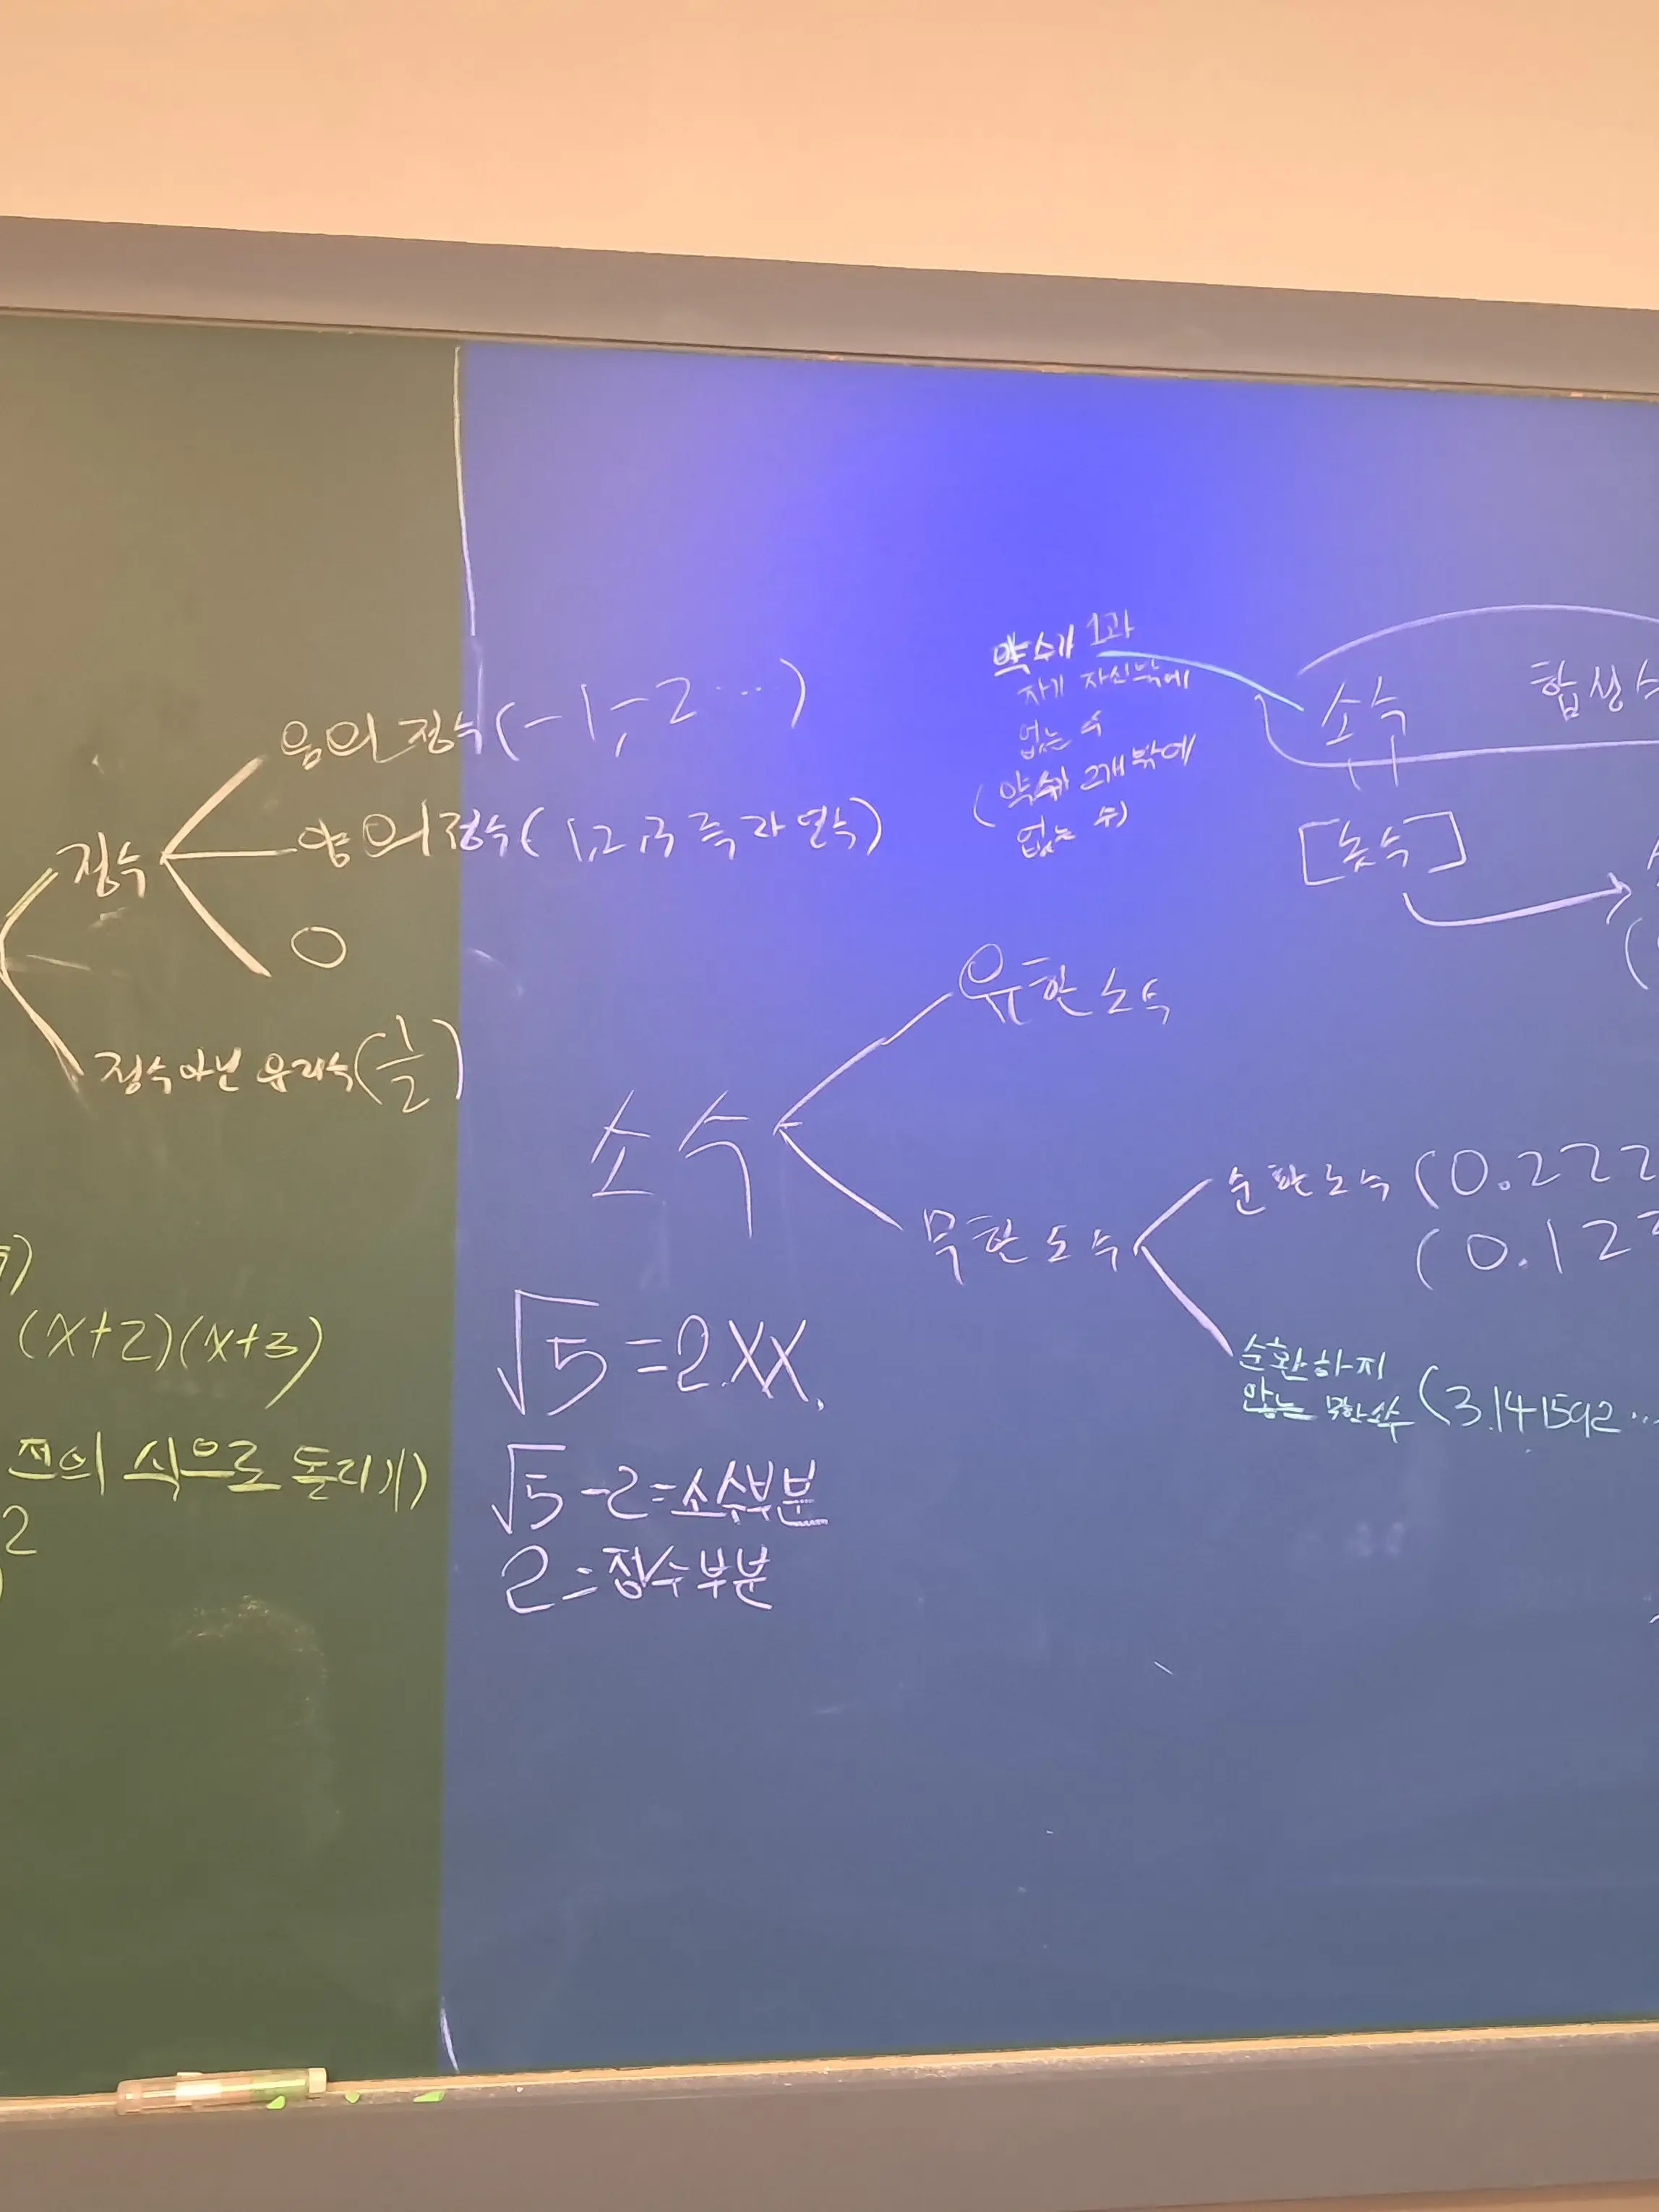 음의 정수(-1, -2 ...)
정수
양의 정수(1,2,3 즉 자연수)
0
정수 아닌 유리수(1/2)
(x+2)(x+3)
전의 식으로 돌리기)
2
약수가 1과
자기 자신밖에
없는 수
(약수가 2개밖에
없는 수)
소수 합성수
[솟수]
소수
유한소수
무한소수
순환소수 (0.222
(0.12
순환하지
않는 무한소수 (3.141592...
√5=2.XX.
√5-2=소수부분
2=정수부분